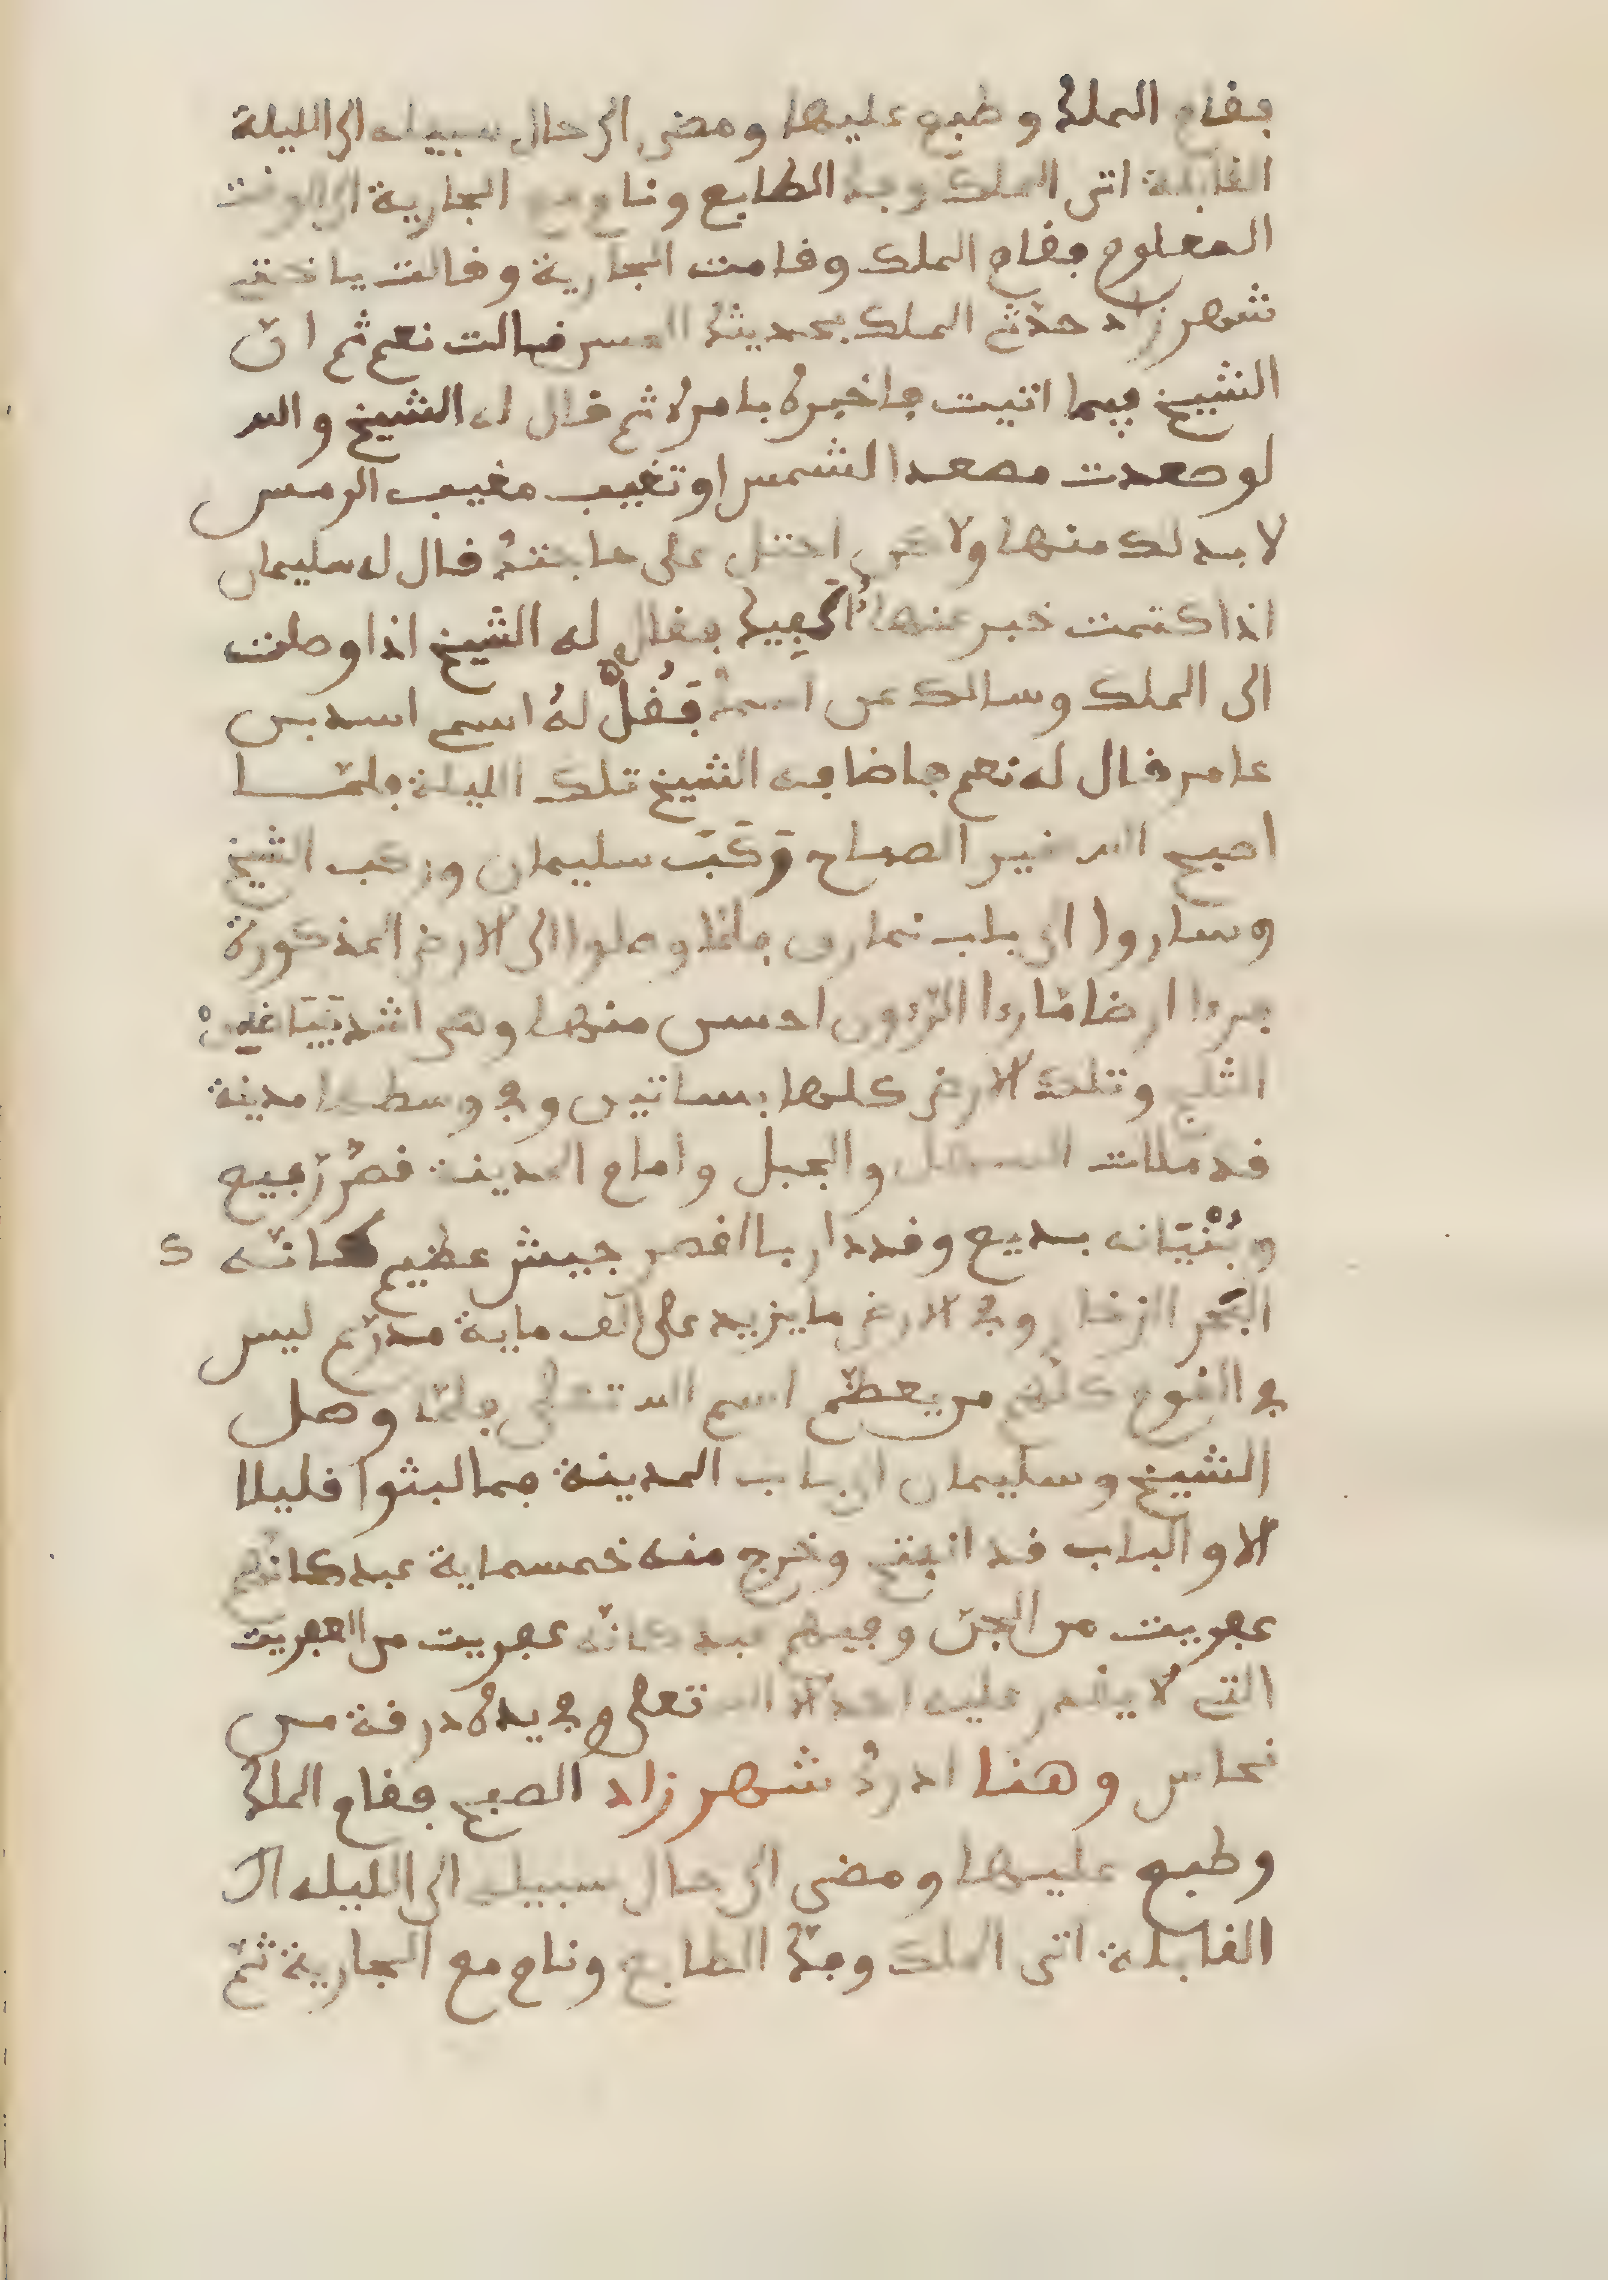 فقام الملك وطبع عليها ومضى الى حال سبيله الى الليلة
القابلة اتى الملك وفك الطابع ونام مع الجارية الى الوقت
المعلوم فقام الملك وقامت الجارية وقالت ياختي
شهرزاد حدّثي الملك بحديثك الحسن فقالت نعم ثم انّ
الشيخ فيما اتيت فاخبره بامره ثم قال له الشيخ والله
لو صعدت مصعد الشمس او تغيب مغيب الرمس
لا بد لك منها ولاكن احتل على حاجتك قال له سليمان
اذا كتمت خبر عنها اكفيك فقال له الشيخ اذا وصلت
الى الملك وسالك عن اسمك فَقُلْ لهُ اسم اسد بن
عامر قال له نعم فاضافه الشيخ تلك الليلة فلمّا
اصبح الله خير الصباح رَكَبَ سليمان وركب الشيخ
وساروا الى باب نمارق فلمّا وصلوا الى الارض المذكورة
فرءا ارضا مّا رءا الرّءون احسن منها وهى اشد بَيَاضًا من
الثلج وتلك الارض كلها بساتين وفي وسطها مدينة
قد ملات السهل والجبل وامام المدينة قصرٌ رّفيع
وبُنْيَانه بديع وقد دار بالقصر جيش عظيم كانّه
البحر الزخار وفي الارض ما يزيد على الف ماية مدرّع ليس
في القوم كلهم من يعظّم اسم الله تعلى فلمّا وصل
الشيخ وسليمان الى باب المدينة فما لبثوا قليلا
الا والباب قد انفتح وخرج منه خمسماية عبد كانهم
عفريت من الجنّ وفيهم عبد كانّه عفريت من العفريت
التي لا يقدر عليه احد الا الله تعلى وفي يده درقة من
نحاس وهنا ادرك شهرزاد الصبح فقام الملك
وطبع عليها ومضى الى حال سبيله الى الليله ال
القابلة اتى الملك وفكّ الطابع ونام مع الجارية ثمّ